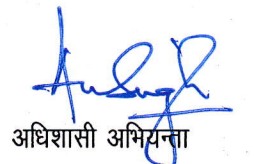 अधिशासी अभियन्ता